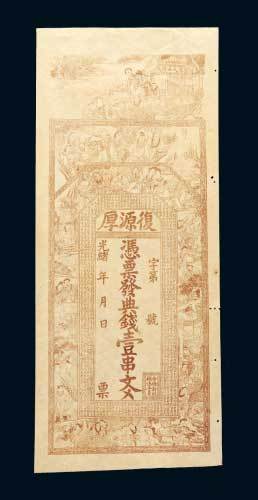 復源厚
字第 號
憑票發典錢壹串文
光緒 年 月 日 票